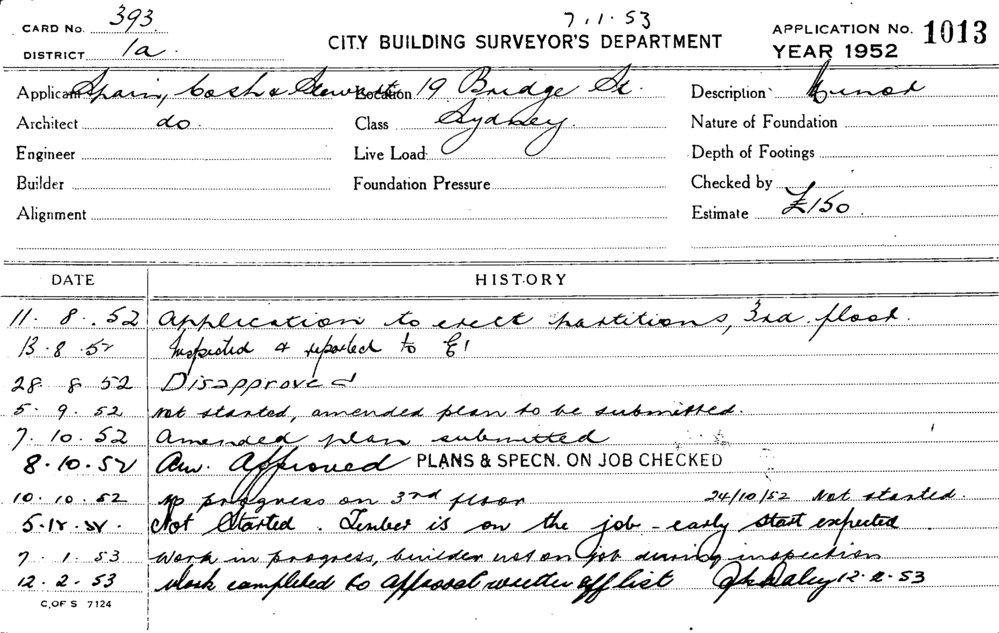 CARD No. 393. 7.1.53
CITY BUILDING SURVEYOR'S DEPARTMENT
APPLICATION No. 1013
DISTRICT 1a. YEAR 1952
Applicant Spain, Cosh & Stewart Location 19 Bridge St. Description Minor
Architect do. Class Sydney. Nature of Foundation
Engineer Live Load Depth of Footings
Builder Foundation Pressure Checked by
Alignment Estimate £150.
DATE HISTORY
11. 8. 52 Application to erect partitions, 3rd. floor.
13.8.52 Inspected & reported to E!
28 8 52 Disapproved
5. 9. 52 Not started, amended plan to be submitted.
7. 10. 52 Amended plan submitted
8.10.52 Am. Approved PLANS & SPECN. ON JOB CHECKED
10. 10. 52 No progress on 3rd floor 24/10/52 Not started.
5.12.52. Not Started. Timber is on the job - early start expected
7. 1. 53 Work in progress, builder not on job during inspection
12. 2. 53 Work completed to approval written off list Daley 12.2.53
C. OF S 7124